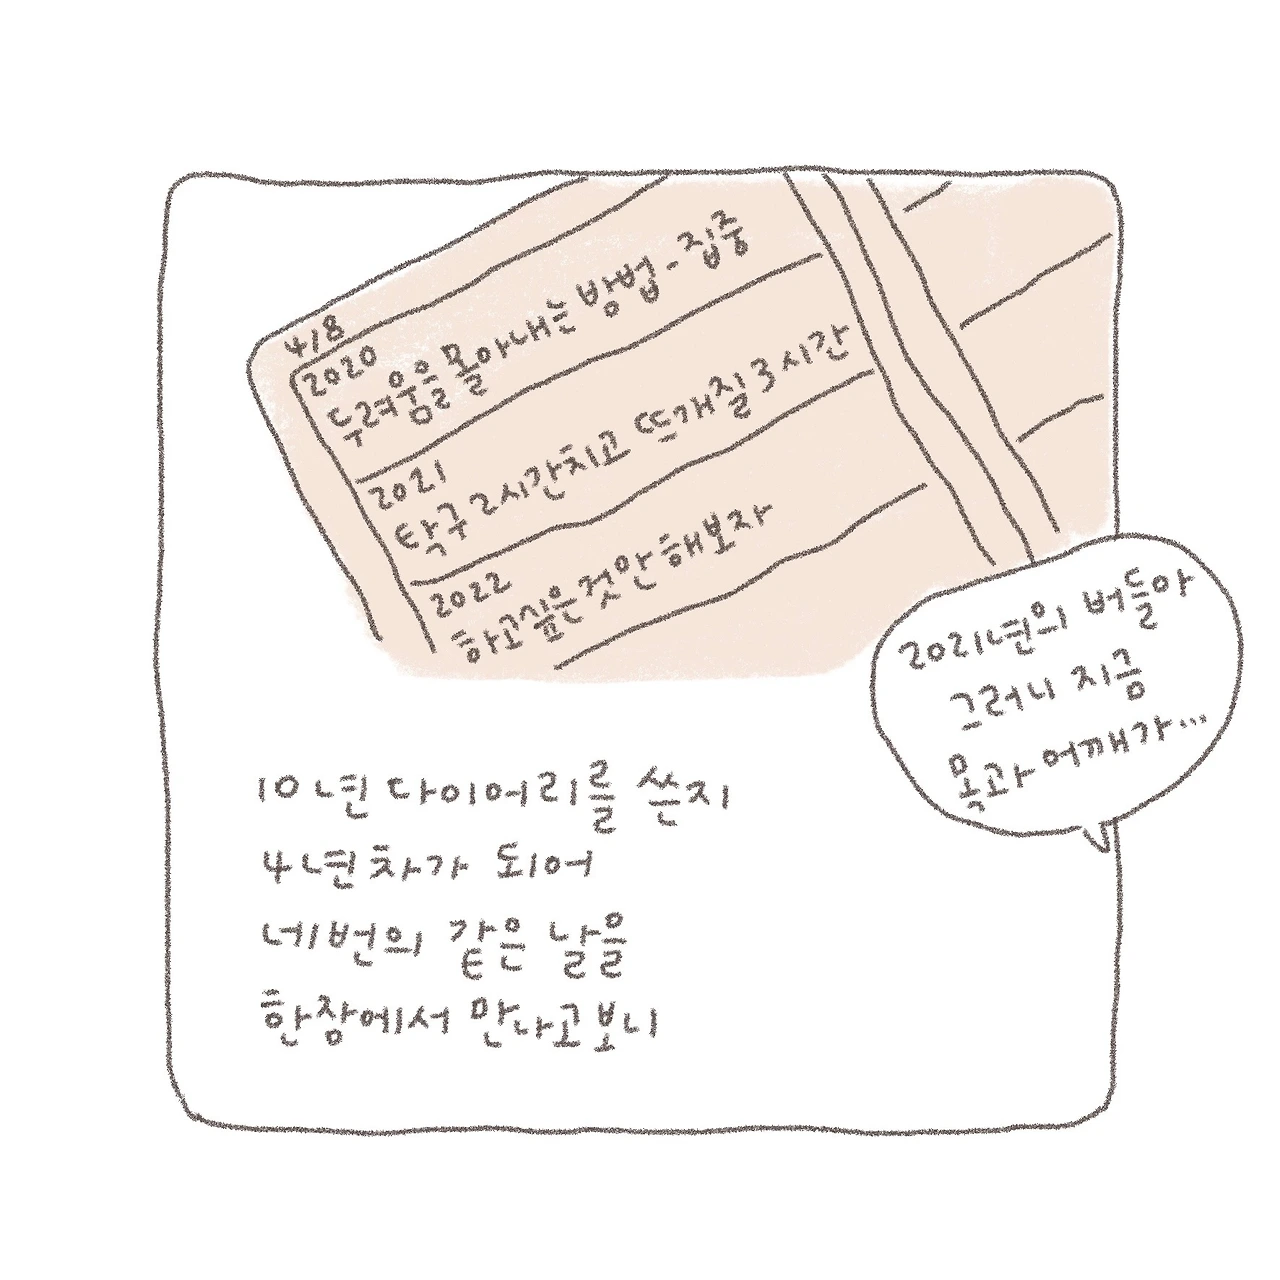 4/8
2020
두려움을 몰아내는 방법-집중
2021
탁구 2시간치고 뜨개질 3시간
2022
하고싶은것만 해보자
2021년의 버들아
그러니 지금
목과 어깨가...
10년 다이어리를 쓴지
4년차가 되어
네번의 같은 날을
한장에서 만나고보니